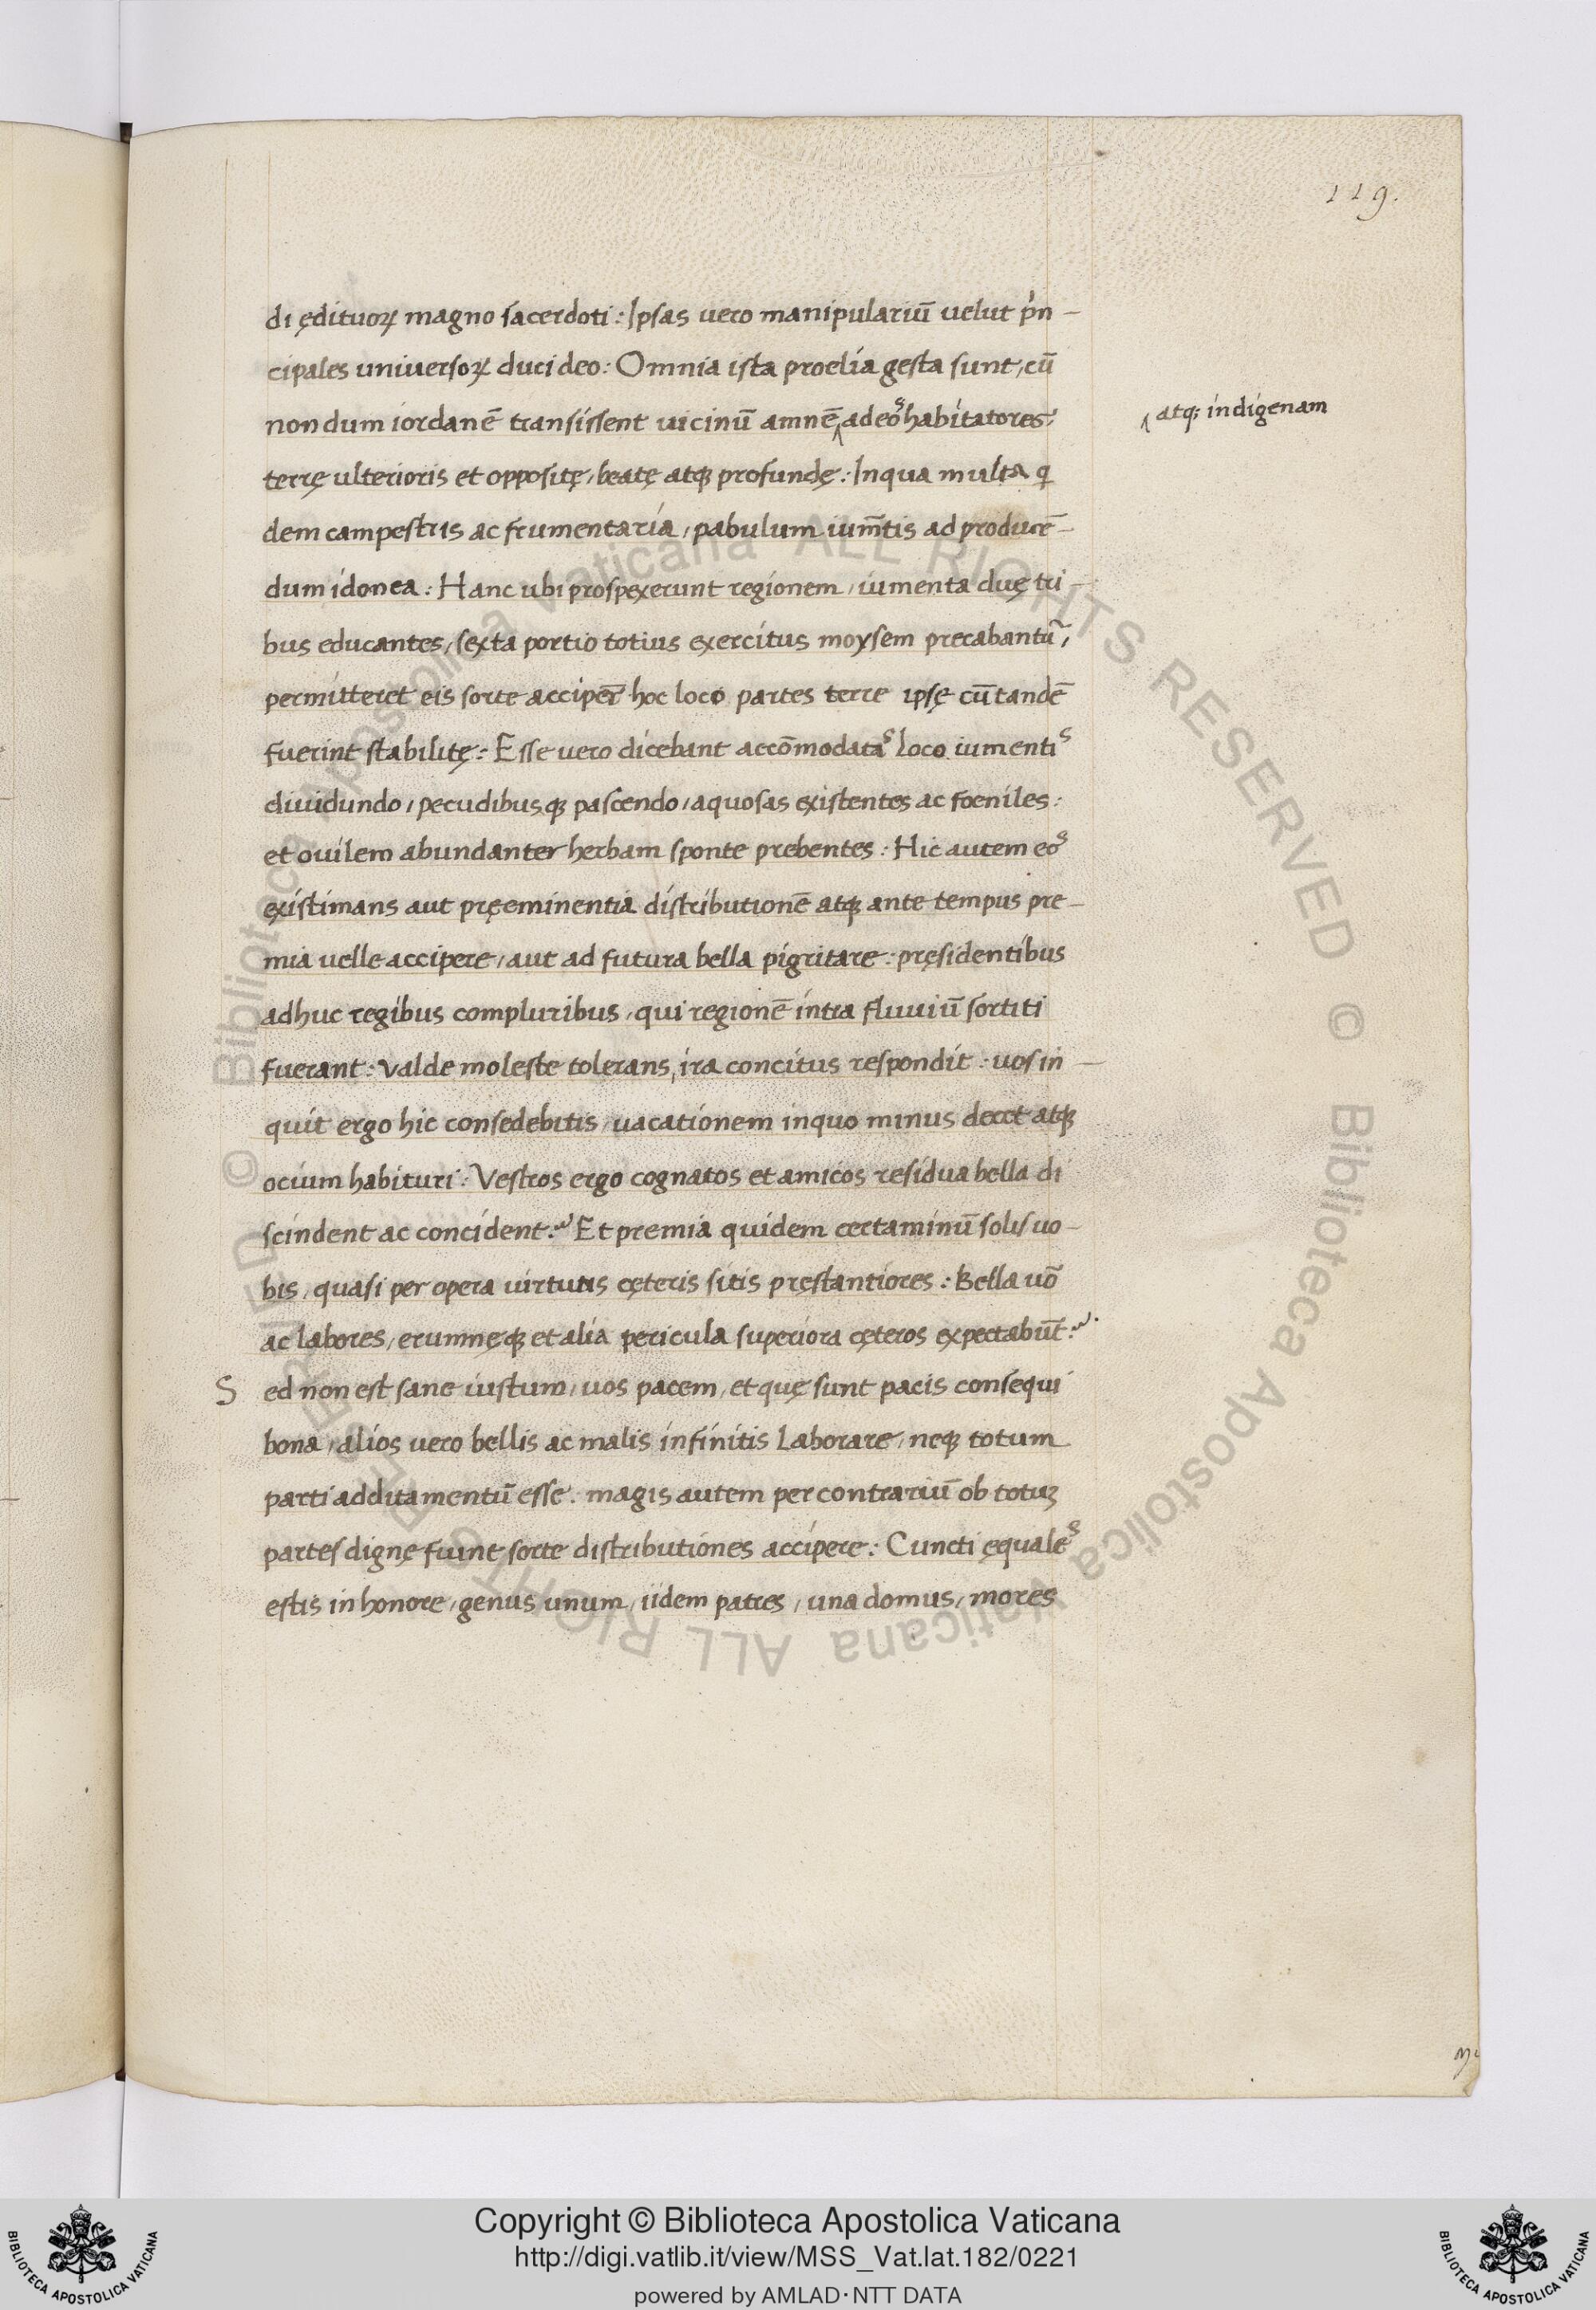 119.
di ędituoꝝ magno sacerdoti : Ipsas vero manipulariū velut pͥn-
cipales universoꝝ duci deo : Omnia ista proelia gesta sunt, cū
nondum iordanē transissent uicinū amnē ‸ ad eos habitatores,
‸ atq; indigenam
terrę ulterioris et oppositę, beatę atq; profundę : In qua multa q
dem campestris ac frumentaria, pabulum ium̄tis ad producē-
dum idonea : Hanc ubi prospexerunt regionem, iumenta duę tri-
bus educantes, sexta portio totius exercitus moysem precabantur̃,
permitteret eis sorte acciper̄ hoc loco partes terre ipsę cū tandē
fuerint stabilitę : Esse vero dicebant accōmodatas loco iumentis
dividundo, pecudibusq; pascendo, aquosas existentes ac foeniles :
et ovilem abundanter herbam sponte prebentes : Hic autem eos
existimans aut pręeminentia distributionē atq; ante tempus pre-
mia velle accipere, aut ad futura bella pigritare : pręsidentibus
adhuc regibus compluribus, qui regionē intra fluuiū sortiti
fuerant : valde moleste tolerans, ira concitus respondit : uos in-
quit ergo hic consedebitis, uacationem in quo minus decet atq;
ocium habituri : Vestros ergo cognatos et amicos residua bella di
scindent ac concident : Et premia quidem certaminū solis uo-
bis, quasi per opera virtutis cęteris sitis pręstantiores : Bella uō
ac labores, erumnęq; et alia pericula superiora cęteros expectabūt :
S ed non est sane iustum, uos pacem, et quę sunt pacis consequi
bona, alios vero bellis ac malis infinitis laborare, neq; totum
parti additamentū esse : magis autem per contrariū ob totuȝ
partes dignę fiunt sorte distributiones accipere : Cuncti ęquales
estis in honore, genus unum, iidem patres, una domus, mores
Copyright © Biblioteca Apostolica Vaticana
http://digi.vatlib.it/view/MSS_Vat.lat.182/0221
powered by AMLAD·NTT DATA
BIBLIOTECA APOSTOLICA VATICANA
BIBLIOTECA APOSTOLICA VATICANA
© Biblioteca Apostolica Vaticana ALL RIGHTS RESERVED © Biblioteca Apostolica Vaticana ALL RIGHTS RESERVED